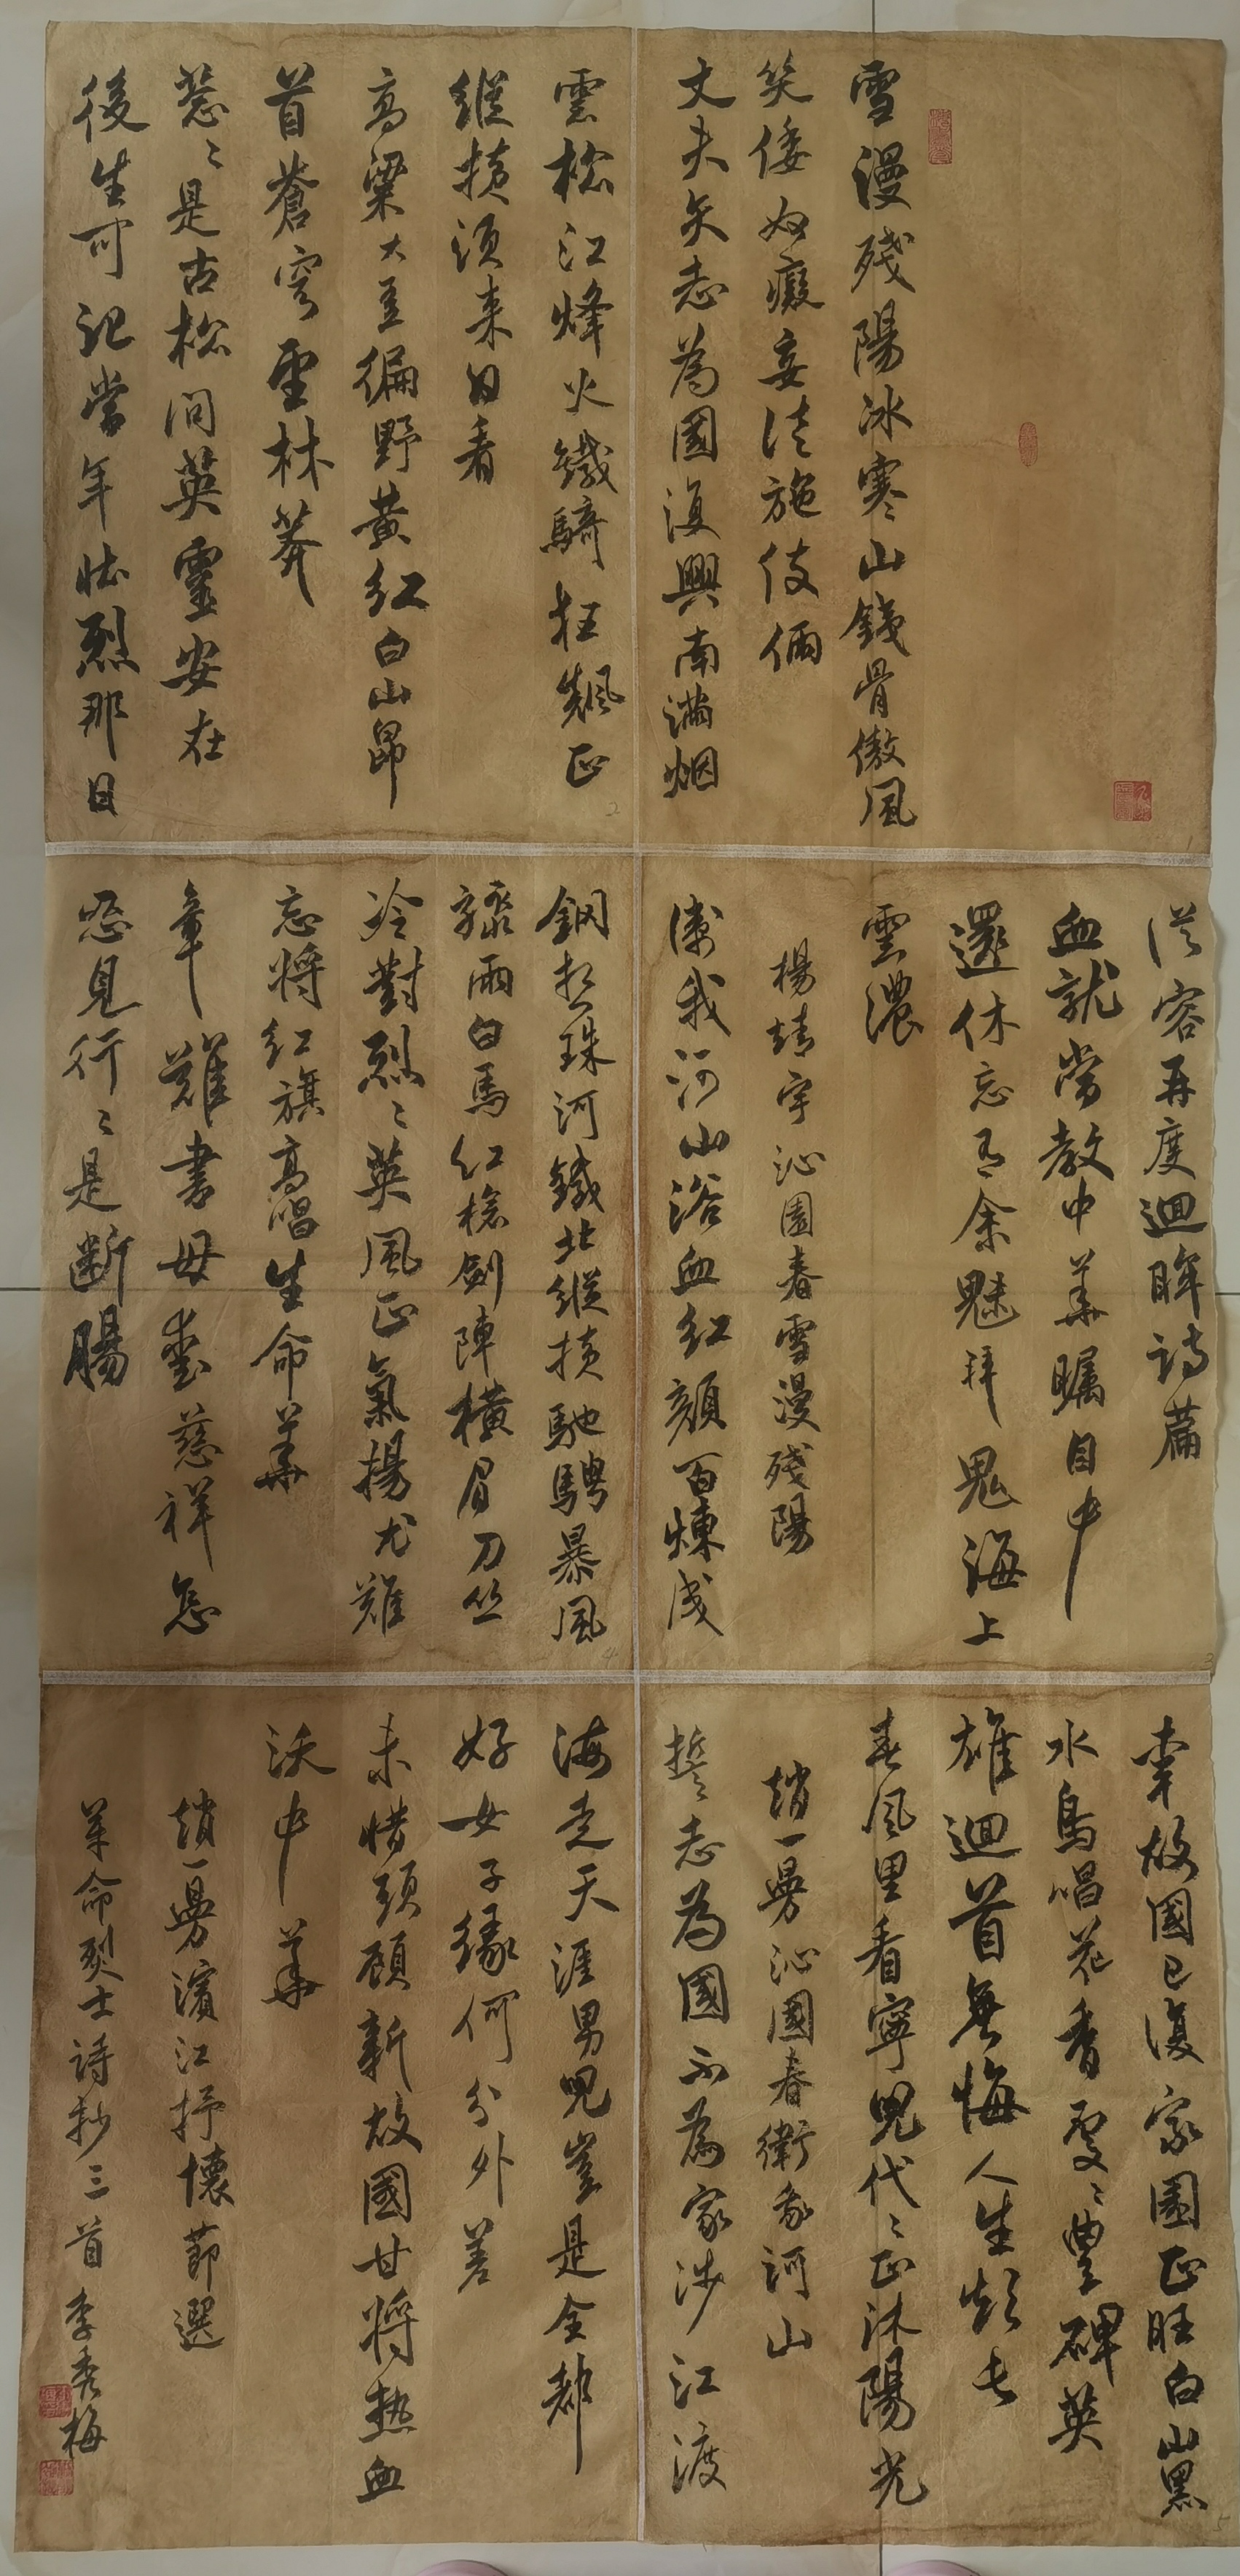 雪漫殘陽冰寒山鐵骨傲風
笑倭奴癡妄法施伎倆
丈夫矢志為國復興南滿烟
雲松江烽火鐵騎狂飆正
縱橫須来日看
高粱大豆徧野黃紅白山昂
首蒼穹望林莽
蔥〻是古松問英靈安在
後生可記當年壯烈那日
從容再度迴眸詩篇
血就當教中華矚目中
還休忘有余魅拜鬼海上
雲濃
楊靖宇沁園春雪漫殘陽
衛我河山浴血紅顏百煉成
鋼想珠河鐵北縱橫馳騁暴風
驟雨白馬紅槍劍陣橫眉刀丛
冷對烈〻英風正氣揚尤難
忘將紅旗高唱生命華
章難書母愛慈祥怎
忍見行〻是斷腸
幸故國已復家園正旺白山黑
水鳥唱花香處〻豐碑英
雄迴首無悔人生長
春風里看寧兒代〻正沐陽光
趙一曼沁園春衛我河山
誓志為國不為家涉江渡
海走天涯男兒豈是全都
好女子緣何分外差
未惜頭顱新故國甘將热血
沃中華
趙一曼濱江抒懷節選
革命烈士詩抄三首 李秀梅